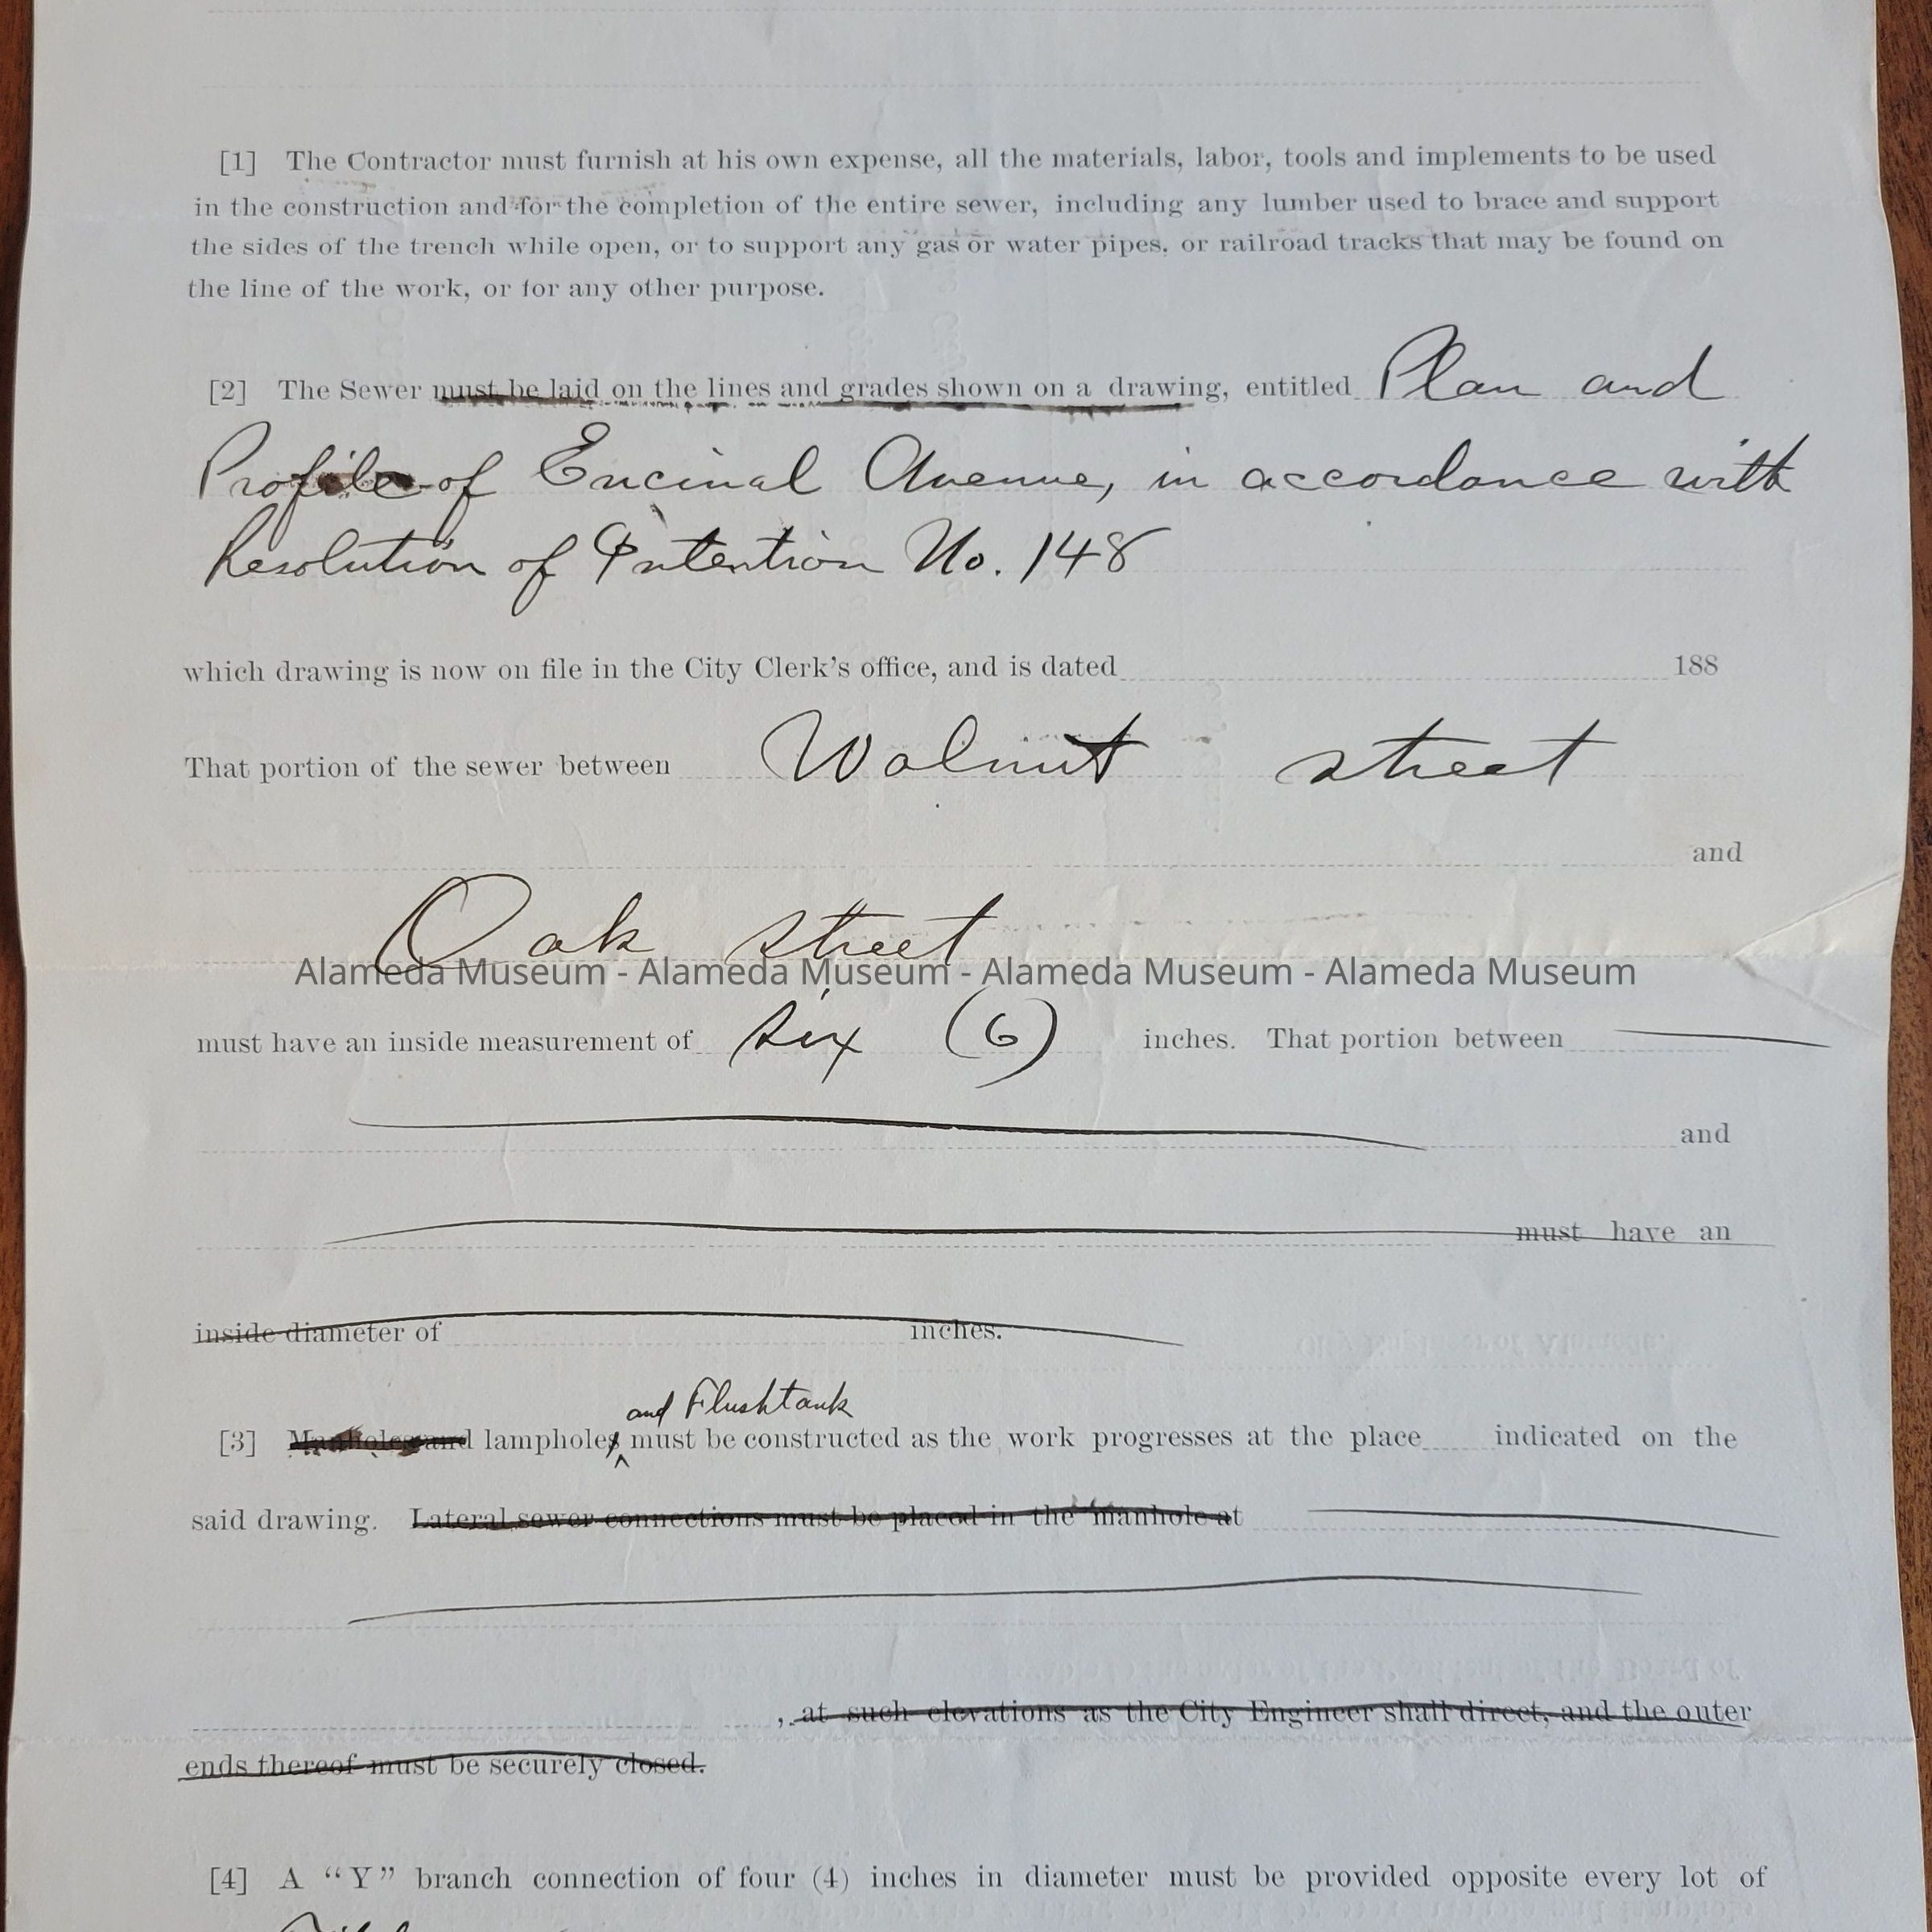 [1] The Contractor must furnish at his own expense, all the materials, labor, tools and implements to be used
in the construction and for the completion of the entire sewer, including any lumber used to brace and support
the sides of the trench while open, or to support any gas or water pipes, or railroad tracks that may be found on
the line of the work, or for any other purpose.
[2] The Sewer must be laid on the lines and grades shown on a drawing, entitled Plan and
Profile of Encinal Avenue, in accordance with
Resolution of Intention No. 148
which drawing is now on file in the City Clerk's office, and is dated 188
That portion of the sewer between Walnut street
and
Oak street
Alameda Museum - Alameda Museum - Alameda Museum - Alameda Museum
must have an inside measurement of six (6) inches. That portion between
and
must have an
inside diameter of inches.
and Flushtank
[3] Manholes and lampholes must be constructed as the work progresses at the place indicated on the
said drawing. Lateral sewer connections must be placed in the manhole at
, at such elevations as the City Engineer shall direct, and the outer
ends thereof must be securely closed.
[4] A “Y” branch connection of four (4) inches in diameter must be provided opposite every lot of